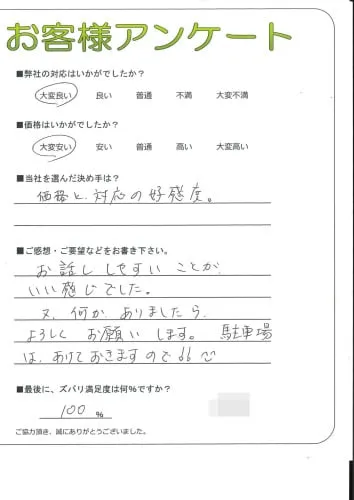 お客様アンケート
■弊社の対応はいかがでしたか?
大変良い 良い 普通 不満 大変不満
■価格はいかがでしたか?
大変安い 安い 普通 高い 大変高い
■当社を選んだ決め手は?
価格と、対応の好感度。
■ご感想・ご要望などをお書き下さい。
お話ししやすいことが、
いい感じでした。
又、何かありましたら、
よろしくお願いします。駐車場
は、あけておきますので!!
■最後に、ズバリ満足度は何%ですか?
100 %
ご協力頂き、誠にありがとうございました。